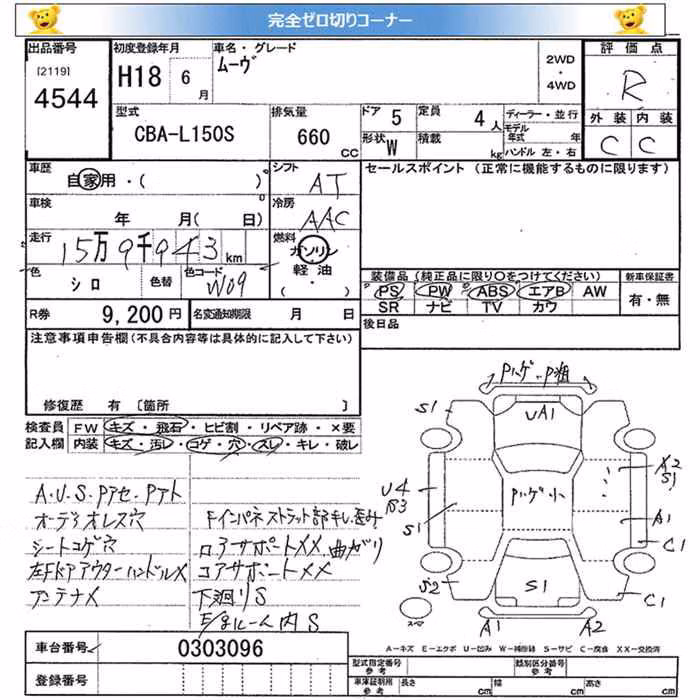 完全ゼロ切りコーナー
出品番号
[2119]
4544
初度登録年月
H18 6月
車名・グレード
ムーヴ
2WD
・
4WD
評価点
R
型式
CBA-L150S
排気量
660 CC
ドア 5
定員 4人
形状 W
積載 kg
ディーラー・並行
モデル年式 年
ハンドル 左・右
外装 内装
C C
車歴
自家用・( )
シフト
AT
セールスポイント (正常に機能するものに限ります)
車検
年 月( 日)
冷房
AAC
走行
15万9千943km
燃料
ガソリン
軽油
( ・ )
色
シロ
色替
色コード
W09
装備品 (純正品に限り○をつけてください)
PS PW ABS エアB AW
SR ナビ TV カワ
新車保証書
有・無
R券 9,200円
名変通知期限 月 日
後日品
注意事項申告欄(不具合内容等は具体的に記入して下さい)
修復歴 有 [箇所 ]
検査員記入欄
FW キズ・飛石・ヒビ割・リペア跡・×要
内装 キズ・汚レ・コゲ・穴・スレ・キレ・破レ
A・U・S・Pアセ・Pアト
オーディオレス穴
シートコゲ穴
左Fドアアウターハンドル×
アンテナ×
Fインパネストラット部キレ歪み
ロアーサポートXX、曲がり
コアサポートXX
下廻りS
内S
Pハゲ・P粗
S1
UA1
X2
S1
U4
B3
Pハゲ小
S1
A1
C1
S2
S1
C1
A1 A2
スペア
A−キズ E−エクボ U−凹み W−補修跡 S−サビ C−腐食 XX−交換済
車台番号 0303096
登録番号
型式指定番号 参考
類別区分番号 参考
車庫証明用 参考
長さ cm
幅 cm
高さ cm